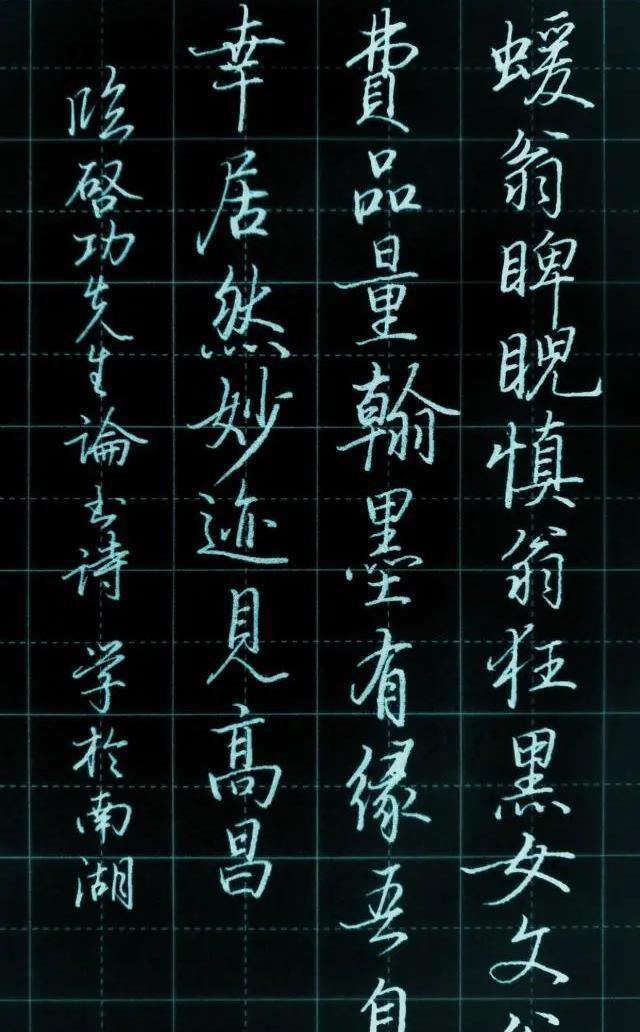 蝯翁睥睨慎翁狂黑女文
費品量翰墨有緣吾自
幸居然妙迹見高昌
臨啓功先生論书詩 学於南湖